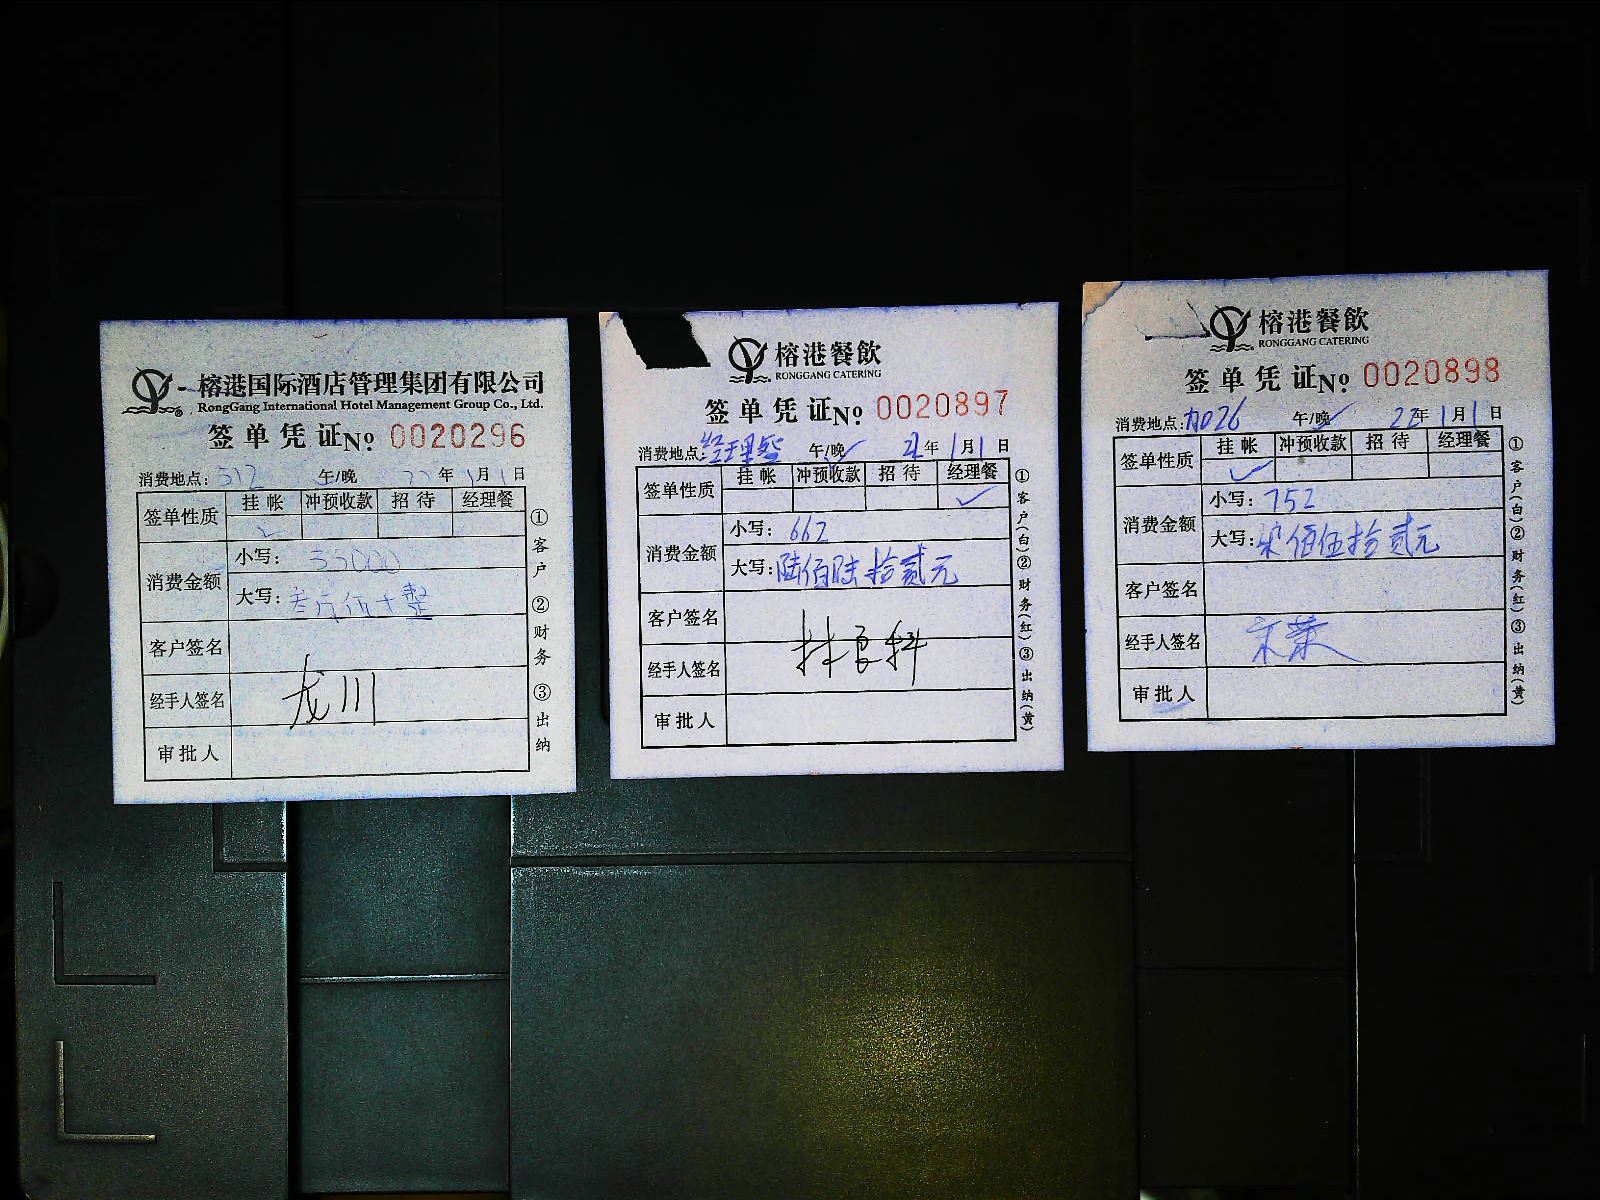 榕港国际酒店管理集团有限公司
RongGang International Hotel Management Group Co., Ltd.
签单凭证No 0020296
消费地点:512 午/晚 22年1月1日
签单性质 挂帐 冲预收款 招待 经理餐
✓
消费金额 小写:
大写:
客户签名
经手人签名 龙川
审批人
①客户 ②财务 ③出纳
榕港餐飲
RONGGANG CATERING
签单凭证No 0020897
消费地点:经理餐 午/晚✓ 年1月1日
签单性质 挂帐 冲预收款 招待 经理餐
✓
消费金额 小写:662
大写:陆佰陆拾贰元
客户签名
经手人签名
审批人
①客户(白)②财务(红)③出纳(黄)
榕港餐飲
RONGGANG CATERING
签单凭证No 0020898
消费地点: 午/晚✓ 22年1月1日
签单性质 挂帐 冲预收款 招待 经理餐
✓
消费金额 小写:752
大写:柒佰伍拾贰元
客户签名
经手人签名
审批人
①客户(白)②财务(红)③出纳(黄)